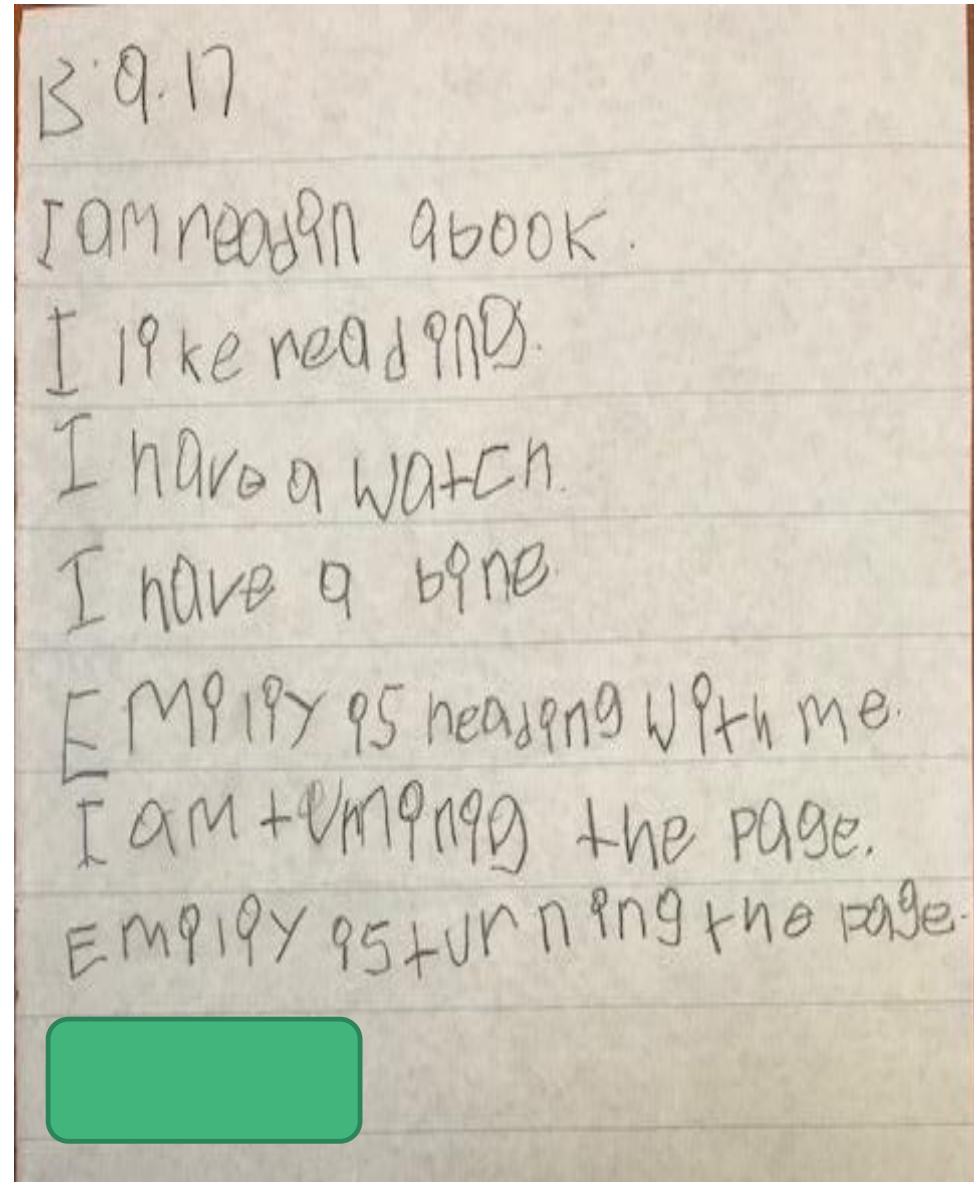 B 9.17
I am readin a book.
I like reading.
I have a watch.
I have a bine.
Emiliy is reading with me.
I am turninig the page.
Emiliy is turning the page.